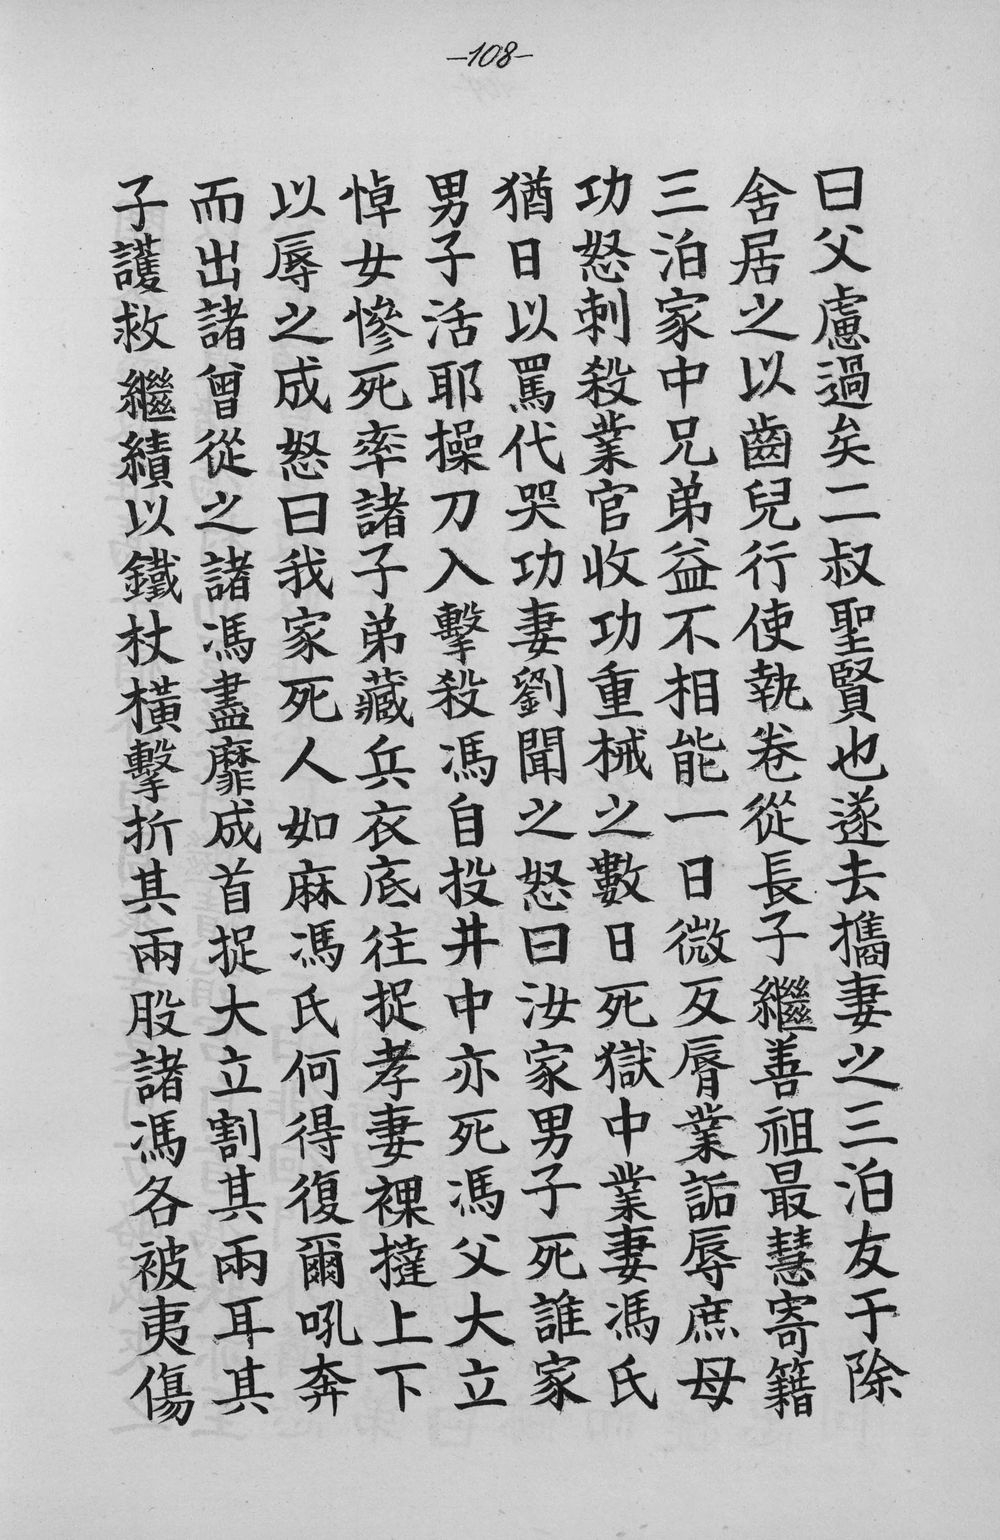 -108-
曰父慮過矣二叔聖賢也遂去攜妻之三泊友于除
舍居之以齒兒行使執卷從長子繼善祖最慧寄籍
三泊家中兄弟益不相能一日微反脣業詬辱庶母
功怒刺殺業官收功重械之數日死獄中業妻馮氏
猶日以罵代哭功妻劉聞之怒曰汝家男子死誰家
男子活耶操刀入擊殺馮自投井中亦死馮父大立
悼女慘死率諸子弟藏兵衣底往捉孝妻裸撻上下
以辱之成怒曰我家死人如麻馮氏何得復爾吼奔
而出諸曾從之諸馮盡靡成首捉大立割其兩耳其
子護救繼績以鐵杖橫擊折其兩股諸馮各被夷傷